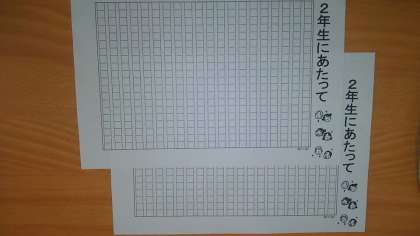 2年生にあたって
2年生にあたって